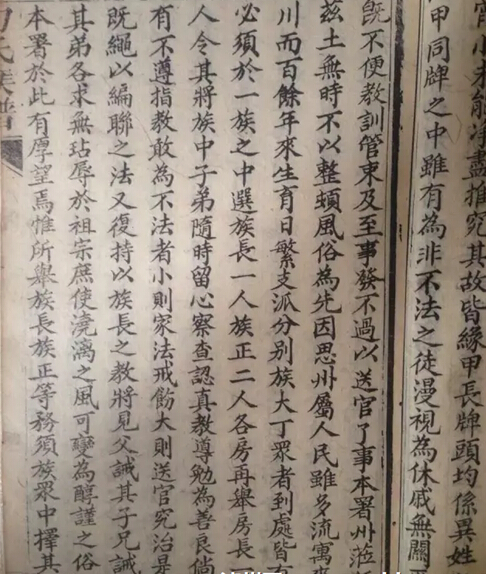 小未能净盡推究其故皆緣甲長牌頭均係異姓
甲同牌之中雖有為非不法之徒漫視為休戚無關
旣不便教訓管束及至事發不過以送官了事本署州蒞
茲土無時不以整頓風俗為先因思州屬人民雖多流寓
川而百餘年來生育日繁支派分别族大丁眾者到處皆有
必須於一族之中選族長一人族正二人各房再舉房長一
人令其將族中子弟隨時留心察查認真教導勉為善良倘
有不遵指教敢為不法者小則家法戒飭大則送官究治是
既繩以編聯之法又復持以族長之教將見父誡其子兄誡
其弟各求無玷辱於祖宗庶使澆漓之風可變為醇謹之俗
本署於此有厚望焉惟所舉族長族正等務須族眾中擇其
氏族譜